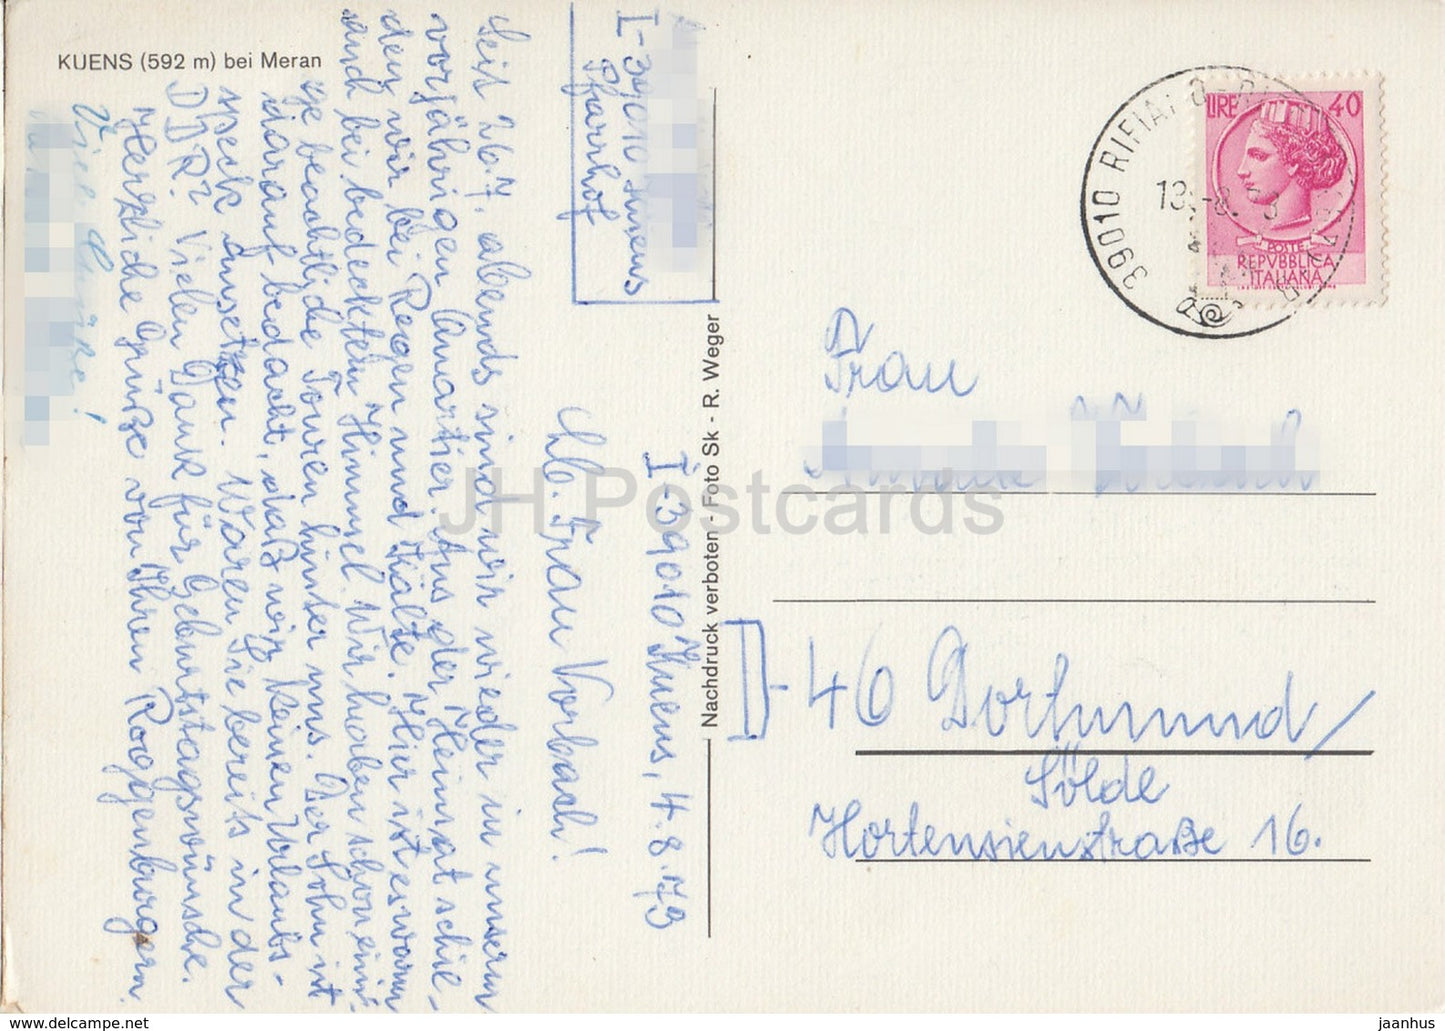 KUENS (592 m) bei Meran
I-39010 Kuens
Pfarrhof
I-39010 Kuens, 4.8.73
Lb. Frau Vorbach!
Seit 26.7. abends sind wir wieder in unserm
vorjährigen Quartier. Aus der Heimat schie-
den wir bei Regen und Kälte. Hier ist es warm
und bei bedecktem Himmel. Wir haben schon eini-
ge beachtliche Touren hinter uns. Der Sohn ist
darauf bedacht, daß wir keinen Urlaubs-
speck ansetzen. Waren Sie bereits in der
DDR? Vielen Dank für Geburtstagswünsche.
Herzliche Grüße von Ihren Roggenburgern
Viele Grüße!
Nachdruck verboten - Foto Sk - R. Weger
39010 RIFIA
LIRE 40
POSTE
REPVBBLICA
ITALIANA
Frau
D-46 Dortmund/
Sölde
Hortensienstraße 16.
JH Postcards
delcampe.net
jaanhus